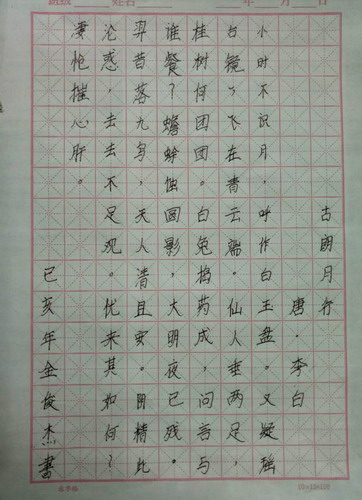 姓名 年 月 日
古朗月行
唐·李白
小时不识月，呼作白玉盘。又疑瑶
台镜，飞在青云端。仙人垂两足，
桂树何团团。白兔捣药成，问言与
谁餐？蟾蜍蚀圆影，大明夜已残。
羿昔落九乌，天人清且安。阴精此
沦惑，去去不足观。忧来其如何？
凄怆摧心肝。
己亥年金俊杰书